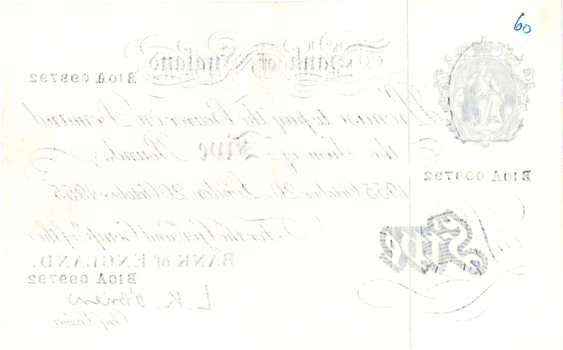 60
Bank of England
B10A 099792
I Promise to pay the Bearer on Demand
the Sum of Five Pounds
B10A 099792
1955 October 20 London 20 October 1955
For the Govr. and Compa. of the
BANK of ENGLAND.
Five
B10A 099792
L.K. O'Brien
Chief Cashier